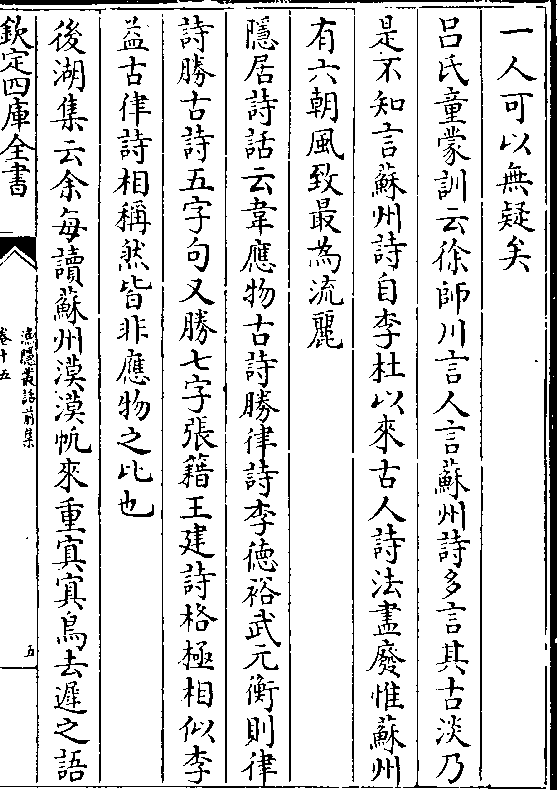 一人可以無疑矣
吕氏童蒙訓云徐師川言人言蘇州詩多言其古淡乃
是不知言蘇州詩自李杜以來古人詩法盡廢惟蘇州
有六朝風致最為流麗
隱居詩話云韋應物古詩勝律詩李德裕武元衡則律
詩勝古詩五字句又勝七字張籍王建詩格極相似李
益古律詩相稱然皆非應物之比也
後湖集云余每讀蘇州漠漠帆來重寘寘鳥去遲之語
欽定四庫全書
漁隱叢話前集
卷十五
五